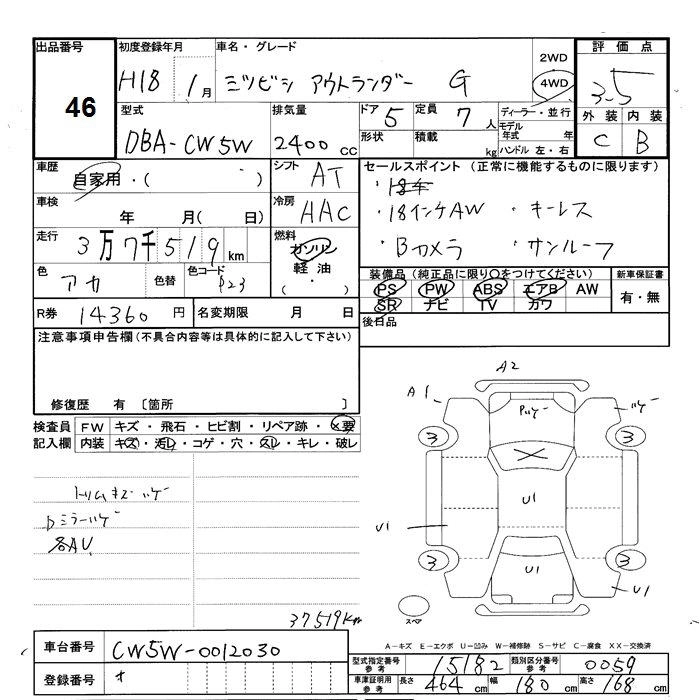 出品番号 初度登録年月 車名・グレード 評価点
46 H18年 1月 ミツビシ アウトランダー G 2WD 4WD 3.5
型式 排気量 ドア 5 定員 7人 ディーラー・並行 外装 内装
DBA-CW5W 2400cc 形状 積載 kg モデル年式 年 C B
ハンドル 左・右
車歴 自家用・( ) シフト AT セールスポイント (正常に機能するものに限ります)
車検 年 月(日) 冷房 AAC ・18インチAW ・キーレス
走行 3万7千519km 燃料 ガソリン 軽油 (・) ・Bカメラ ・サンルーフ
色 アカ 色替 色コード P23 装備品 (純正品に限り○をつけてください) 新車保証書
PS PW ABS エアB AW 有・無
SR ナビ TV カワ
R券 14360円 名変期限 月 日 後日品
注意事項申告欄 (不具合内容等は具体的に記入して下さい)
修復歴 有 〔箇所 〕
検査員 FW キズ・飛石・ヒビ割・リペア跡・×要
記入欄 内装 キズ・汚レ・コゲ・穴・スレ・キレ・破レ
トリムキズハゲ
Dミラーハゲ
各AU
37519km
A2
A1
ハゲ
3 3
U1
U1
U1
3 3
U1
スペア
A-キズ E-エクボ U-凹み W-補修跡 S-サビ C-腐食 XX-交換済
車台番号 CW5W-0012030
登録番号
型式指定番号 参考 15182 類別区分番号 参考 0059
車庫証明用 参考 長さ 464cm 幅 180cm 高さ 168cm